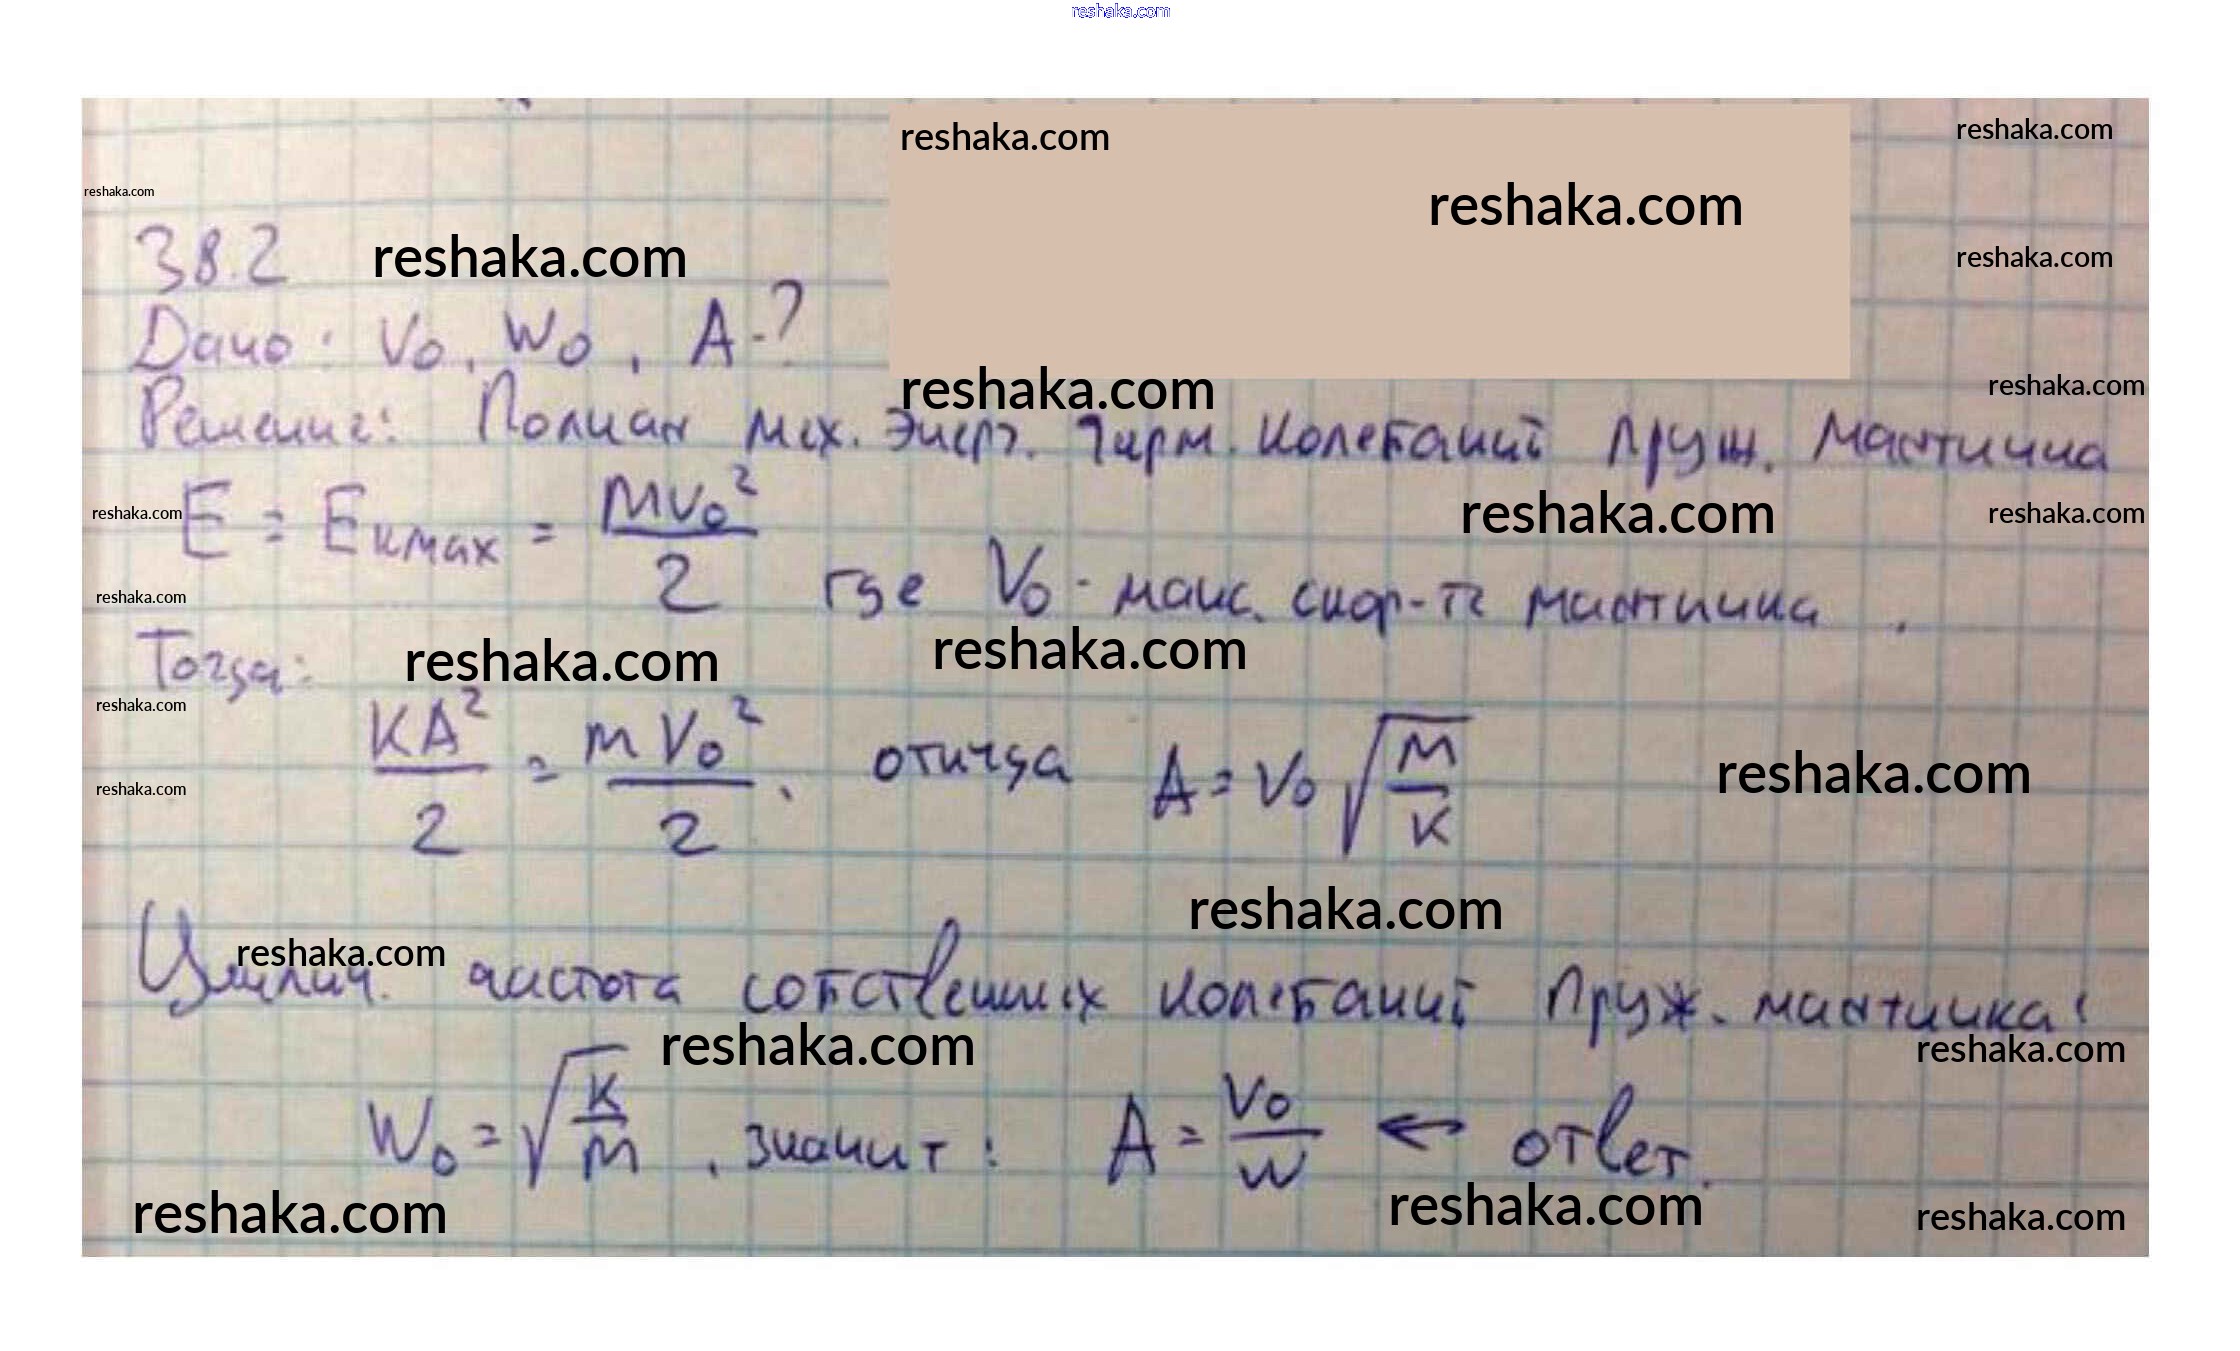 reshaka.com
reshaka.com
reshaka.com
reshaka.com
reshaka.com
38.2 reshaka.com
reshaka.com
Дано: V₀, W₀, A-?
reshaka.com
reshaka.com
Решение: Полная мех. Энерг. Гарм. Колебаний Пруж. Маятника
E = Eкmax = mv₀²/2 где V₀ - макс. скор-ть маятника.
reshaka.com
reshaka.com
reshaka.com
reshaka.com
Тогда: reshaka.com reshaka.com
reshaka.com
KA²/2 = mV₀²/2, откуда A = V₀√(m/K)
reshaka.com
reshaka.com
reshaka.com
reshaka.com
Циклич. частота собственных колебаний Пруж. маятника:
reshaka.com
reshaka.com
W₀ = √(K/m), значит: A = V₀/W ← ответ.
reshaka.com
reshaka.com
reshaka.com